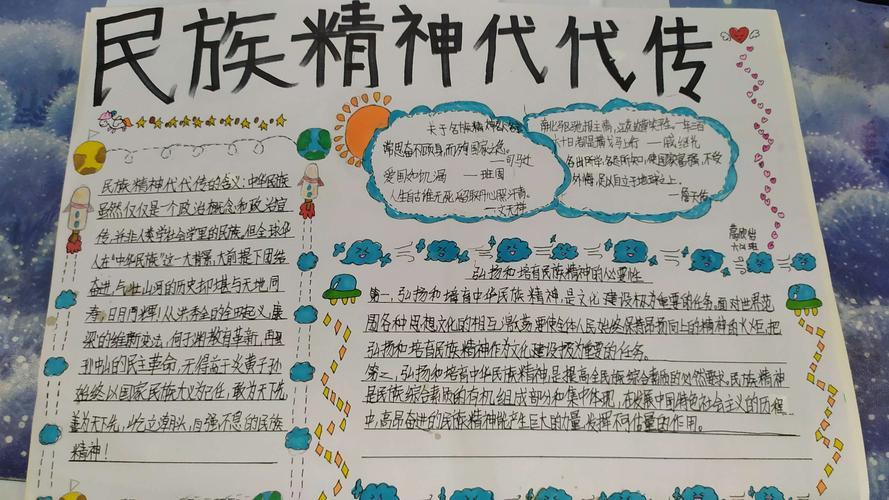 民族精神代代传
民族精神代代传的含义:中华民族
虽然仅仅是一个政治概念和政治宣
传,并非人类学社会学里的民族。但全球华
人在“中华民族”这一大背景,大前提下团结
奋进,与壮山河的历史却堪与天地同
寿,日月同辉!从洪秀全的金田起义,康
梁的维新变法,何子渊教育革新,再
到孙中山的民主革命,无得益于炎黄子孙
始终以国家民族大义为己任,敢为天下先,
善为天下先,屹立潮头,自强不息的民族
精神!
关于名族精神
常思奋不顾身,而殉国家之急。
——司马迁
爱国如饥渴 ——班固
人生自古谁无死,留取丹心照汗青。
——文天祥
南北驱驰报主情,江花边月笑平生。一年三百
六十日,都是横戈马上行 ——戚继光
各出所学,各尽所知,使国家富强,不受
外侮,足以自立于地球之上。
——詹天佑
弘扬和培育民族精神的必要性
第一,弘扬和培育中华民族精神,是文化建设极为重要的任务。面对世界范
围各种思想文化的相互激荡,要使全体人民始终保持昂扬向上的精神的火炬,把
弘扬和培育民族精神作为文化建设极为重要的任务。
第二,弘扬和培育中华民族精神,是提高全民族综合素质的必然要求。民族精神
是民族综合素质的有机组成部分和集中体现,在发展中国特色社会主义的历程
中,高昂奋进的民族精神能产生巨大的力量,发挥不可估量的作用。